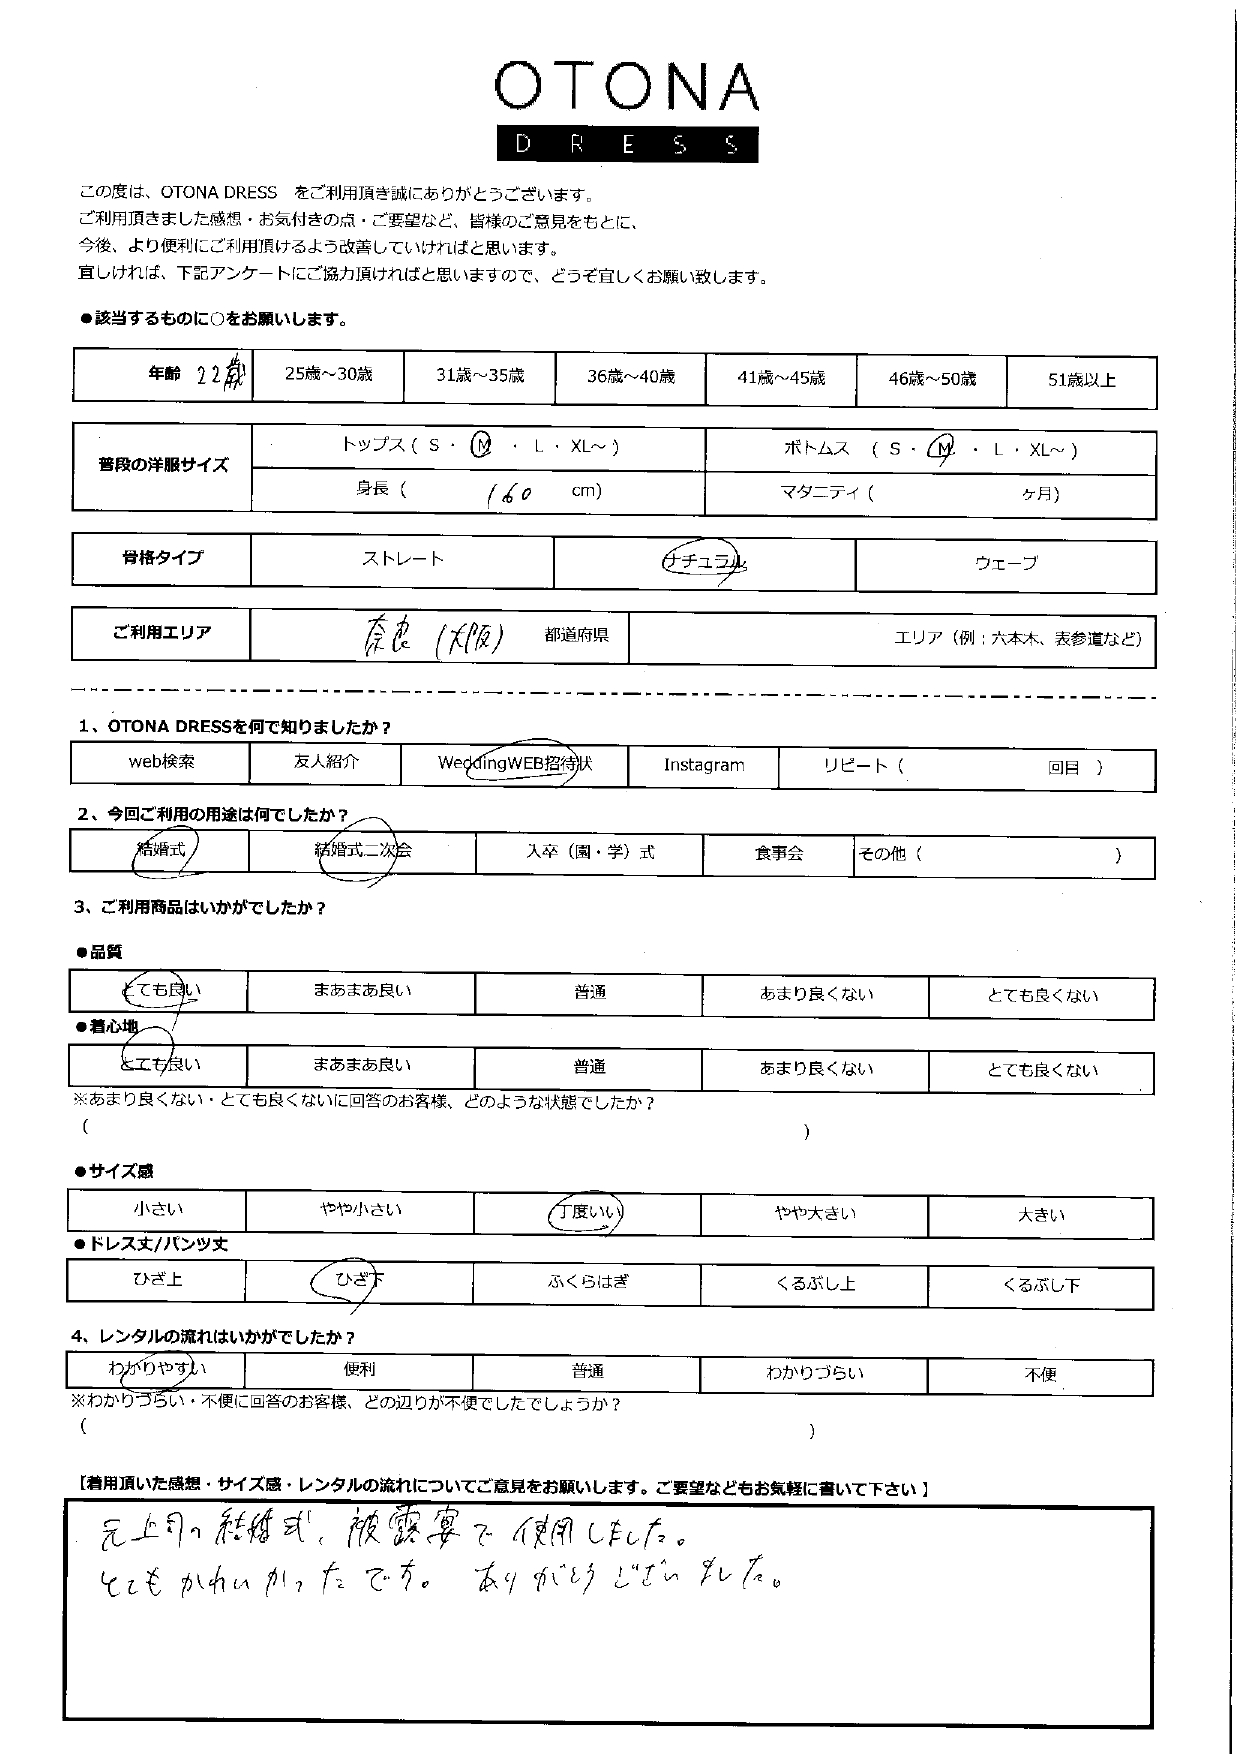 OTONA
DRESS
この度は、OTONA DRESS をご利用頂き誠にありがとうございます。
ご利用頂きました感想・お気付きの点・ご要望など、皆様のご意見をもとに、
今後、より便利にご利用頂けるよう改善していければと思います。
宜しければ、下記アンケートにご協力頂ければと思いますので、どうぞ宜しくお願い致します。
●該当するものに○をお願いします。
年齢 22歳 25歳～30歳 31歳～35歳 36歳～40歳 41歳～45歳 46歳～50歳 51歳以上
普段の洋服サイズ トップス ( S ・ M ・ L ・ XL～ ) ボトムス ( S ・ M ・ L ・ XL～ )
身長 ( 160 cm) マタニティ ( ヶ月)
骨格タイプ ストレート ナチュラル ウェーブ
ご利用エリア 奈良 (大阪) 都道府県 エリア（例；六本木、表参道など）
1、OTONA DRESSを何で知りましたか？
web検索 友人紹介 WeddingWEB招待状 Instagram リピート ( 回目 )
2、今回ご利用の用途は何でしたか？
結婚式 結婚式二次会 入卒（園・学）式 食事会 その他 ( )
3、ご利用商品はいかがでしたか？
●品質
とても良い まあまあ良い 普通 あまり良くない とても良くない
●着心地
とても良い まあまあ良い 普通 あまり良くない とても良くない
※あまり良くない・とても良くないに回答のお客様、どのような状態でしたか？
( )
●サイズ感
小さい やや小さい 丁度いい やや大きい 大きい
●ドレス丈/パンツ丈
ひざ上 ひざ下 ふくらはぎ くるぶし上 くるぶし下
4、レンタルの流れはいかがでしたか？
わかりやすい 便利 普通 わかりづらい 不便
※わかりづらい・不便に回答のお客様、どの辺りが不便でしたでしょうか？
( )
【着用頂いた感想・サイズ感・レンタルの流れについてご意見をお願いします。ご要望などもお気軽に書いて下さい】
元上司の結婚式、被露宴で使用しました。
とてもかわいかったです。ありがとうございました。